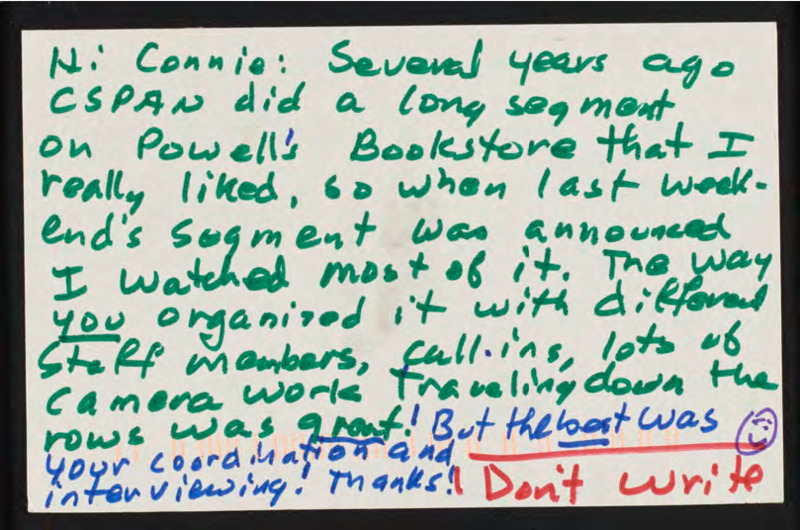 Hi Connie: Several years ago
CSPAN did a long segment
on Powell's Bookstore that I
really liked, so when last week-
end's segment was announced
I watched most of it. The way
you organized it with different
staff members, call-ins, lots of
camera work traveling down the
rows was great! But the best was
your coordination and
interviewing! Thanks!!
Don't write